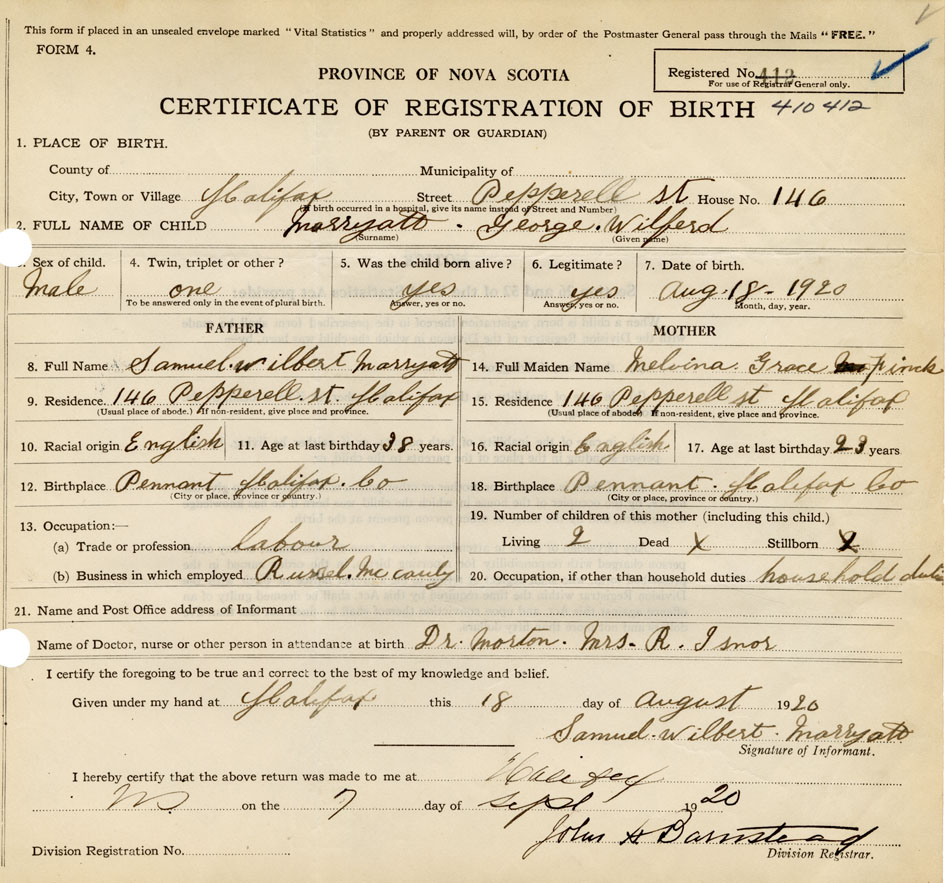 This form if placed in an unsealed envelope marked "Vital Statistics" and properly addressed will, by order of the Postmaster General pass through the Mails "FREE."
FORM 4.
Registered No. 412
For use of Registrar General only.
PROVINCE OF NOVA SCOTIA
CERTIFICATE OF REGISTRATION OF BIRTH 410 412
(BY PARENT OR GUARDIAN)
1. PLACE OF BIRTH.
County of Municipality of
City, Town or Village Halifax Street Pepperell st House No. 146
(If birth occurred in a hospital, give its name instead of Street and Number)
2. FULL NAME OF CHILD Marryatt - George. Wilferd
(Surname) (Given name)
3. Sex of child. 4. Twin, triplet or other? 5. Was the child born alive? 6. Legitimate? 7. Date of birth.
Male one yes yes Aug. 18 - 1920
To be answered only in the event of plural birth. Answer, yes or no. Answer, yes or no. Month, day, year.
FATHER MOTHER
8. Full Name Samuel. Wilbert Marryatt 14. Full Maiden Name Melvina. Grace Finck
9. Residence. 146 Pepperell. st. Halifax 15. Residence 146 Pepperell st Halifax
(Usual place of abode.) If non-resident, give place and province. (Usual place of abode) If non-resident, give place and province.
10. Racial origin English 11. Age at last birthday 38 years. 16. Racial origin English 17. Age at last birthday 23 years
12. Birthplace Pennant Halifax. Co 18. Birthplace Pennant. Halifax Co
(City or place, province or country.) (City or place, province or country.)
13. Occupation:— 19. Number of children of this mother (including this child.)
(a) Trade or profession labour Living 2 Dead X Stillborn X
(b) Business in which employed Russel. McCauly 20. Occupation, if other than household duties household dutie
21. Name and Post Office address of Informant
Name of Doctor, nurse or other person in attendance at birth Dr. Morton. Mrs. R. Isnor
I certify the foregoing to be true and correct to the best of my knowledge and belief.
Given under my hand at Halifax this 18 day of august 1920
Samuel. Wilbert. Marryatt
Signature of Informant.
I hereby certify that the above return was made to me at Halifax
NS on the 7 day of Sept 1920
John H Barnstead
Division Registration No. Division Registrar.